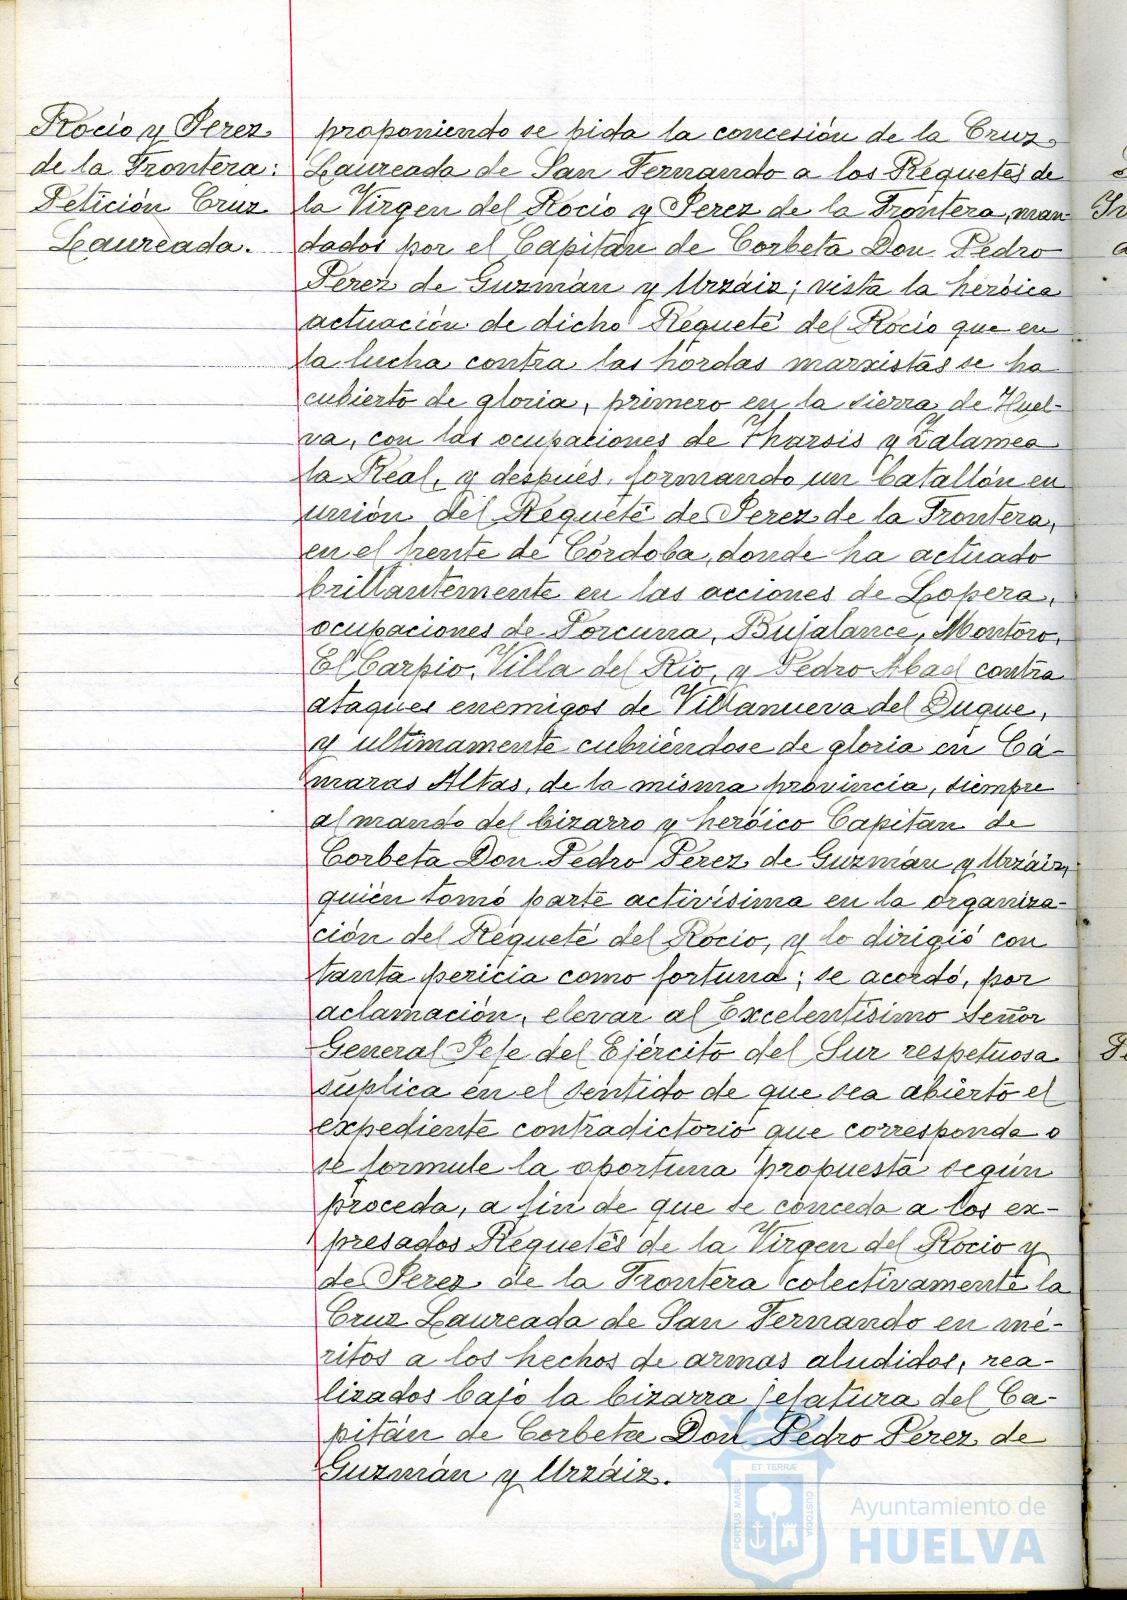 Rocío y Jerez
de la Frontera:
Petición Cruz
Laureada.
proponiendo se pida la concesión de la Cruz
Laureada de San Fernando a los Requetés de
la Virgen del Rocío y Jerez de la Frontera, man-
dados por el Capitán de Corbeta Don Pedro
Perez de Guzmán y Urzáiz; vista la heróica
actuación de dicho Requeté del Rocío que en
la lucha contra las hordas marxistas se ha
cubierto de gloria, primero en la sierra de Huel-
va, con las ocupaciones de Tharsis y Zalamea
la Real, y después, formando un batallón en
unión del Requeté de Jerez de la Frontera,
en el frente de Córdoba, donde ha actuado
brillantemente en las acciones de Lopera,
ocupaciones de Porcuna, Bujalance, Montoro,
El Carpio, Villa del Rio, y Pedro Abad contra
ataques enemigos de Villanueva del Duque,
y ultimamente cubriéndose de gloria en Cá-
maras Altas, de la misma provincia, siempre
al mando del bizarro y heróico Capitan de
Corbeta Don Pedro Pérez de Guzmán y Urzáiz,
quién tomó parte activísima en la organiza-
ción del Requeté del Rocío, y lo dirigió con
tanta pericia como fortuna; se acordó, por
aclamación, elevar al Excelentísimo Señor
General Jefe del Ejército del Sur respetuosa
súplica en el sentido de que sea abierto el
expediente contradictorio que corresponda o
se formule la oportuna propuesta según
proceda, a fin de que se conceda a los ex-
presados Requetés de la Virgen del Rocio y
de Jerez de la Frontera colectivamente la
Cruz Laureada de San Fernando en mé-
ritos a los hechos de armas aludidos, rea-
lizados bajo la bizarra jefatura del Ca-
pitán de Corbeta Don Pedro Pérez de
Guzmán y Urzáiz.
ET TERRÆ
PORTUS MARIS
CUSTODIA
Ayuntamiento de
HUELVA